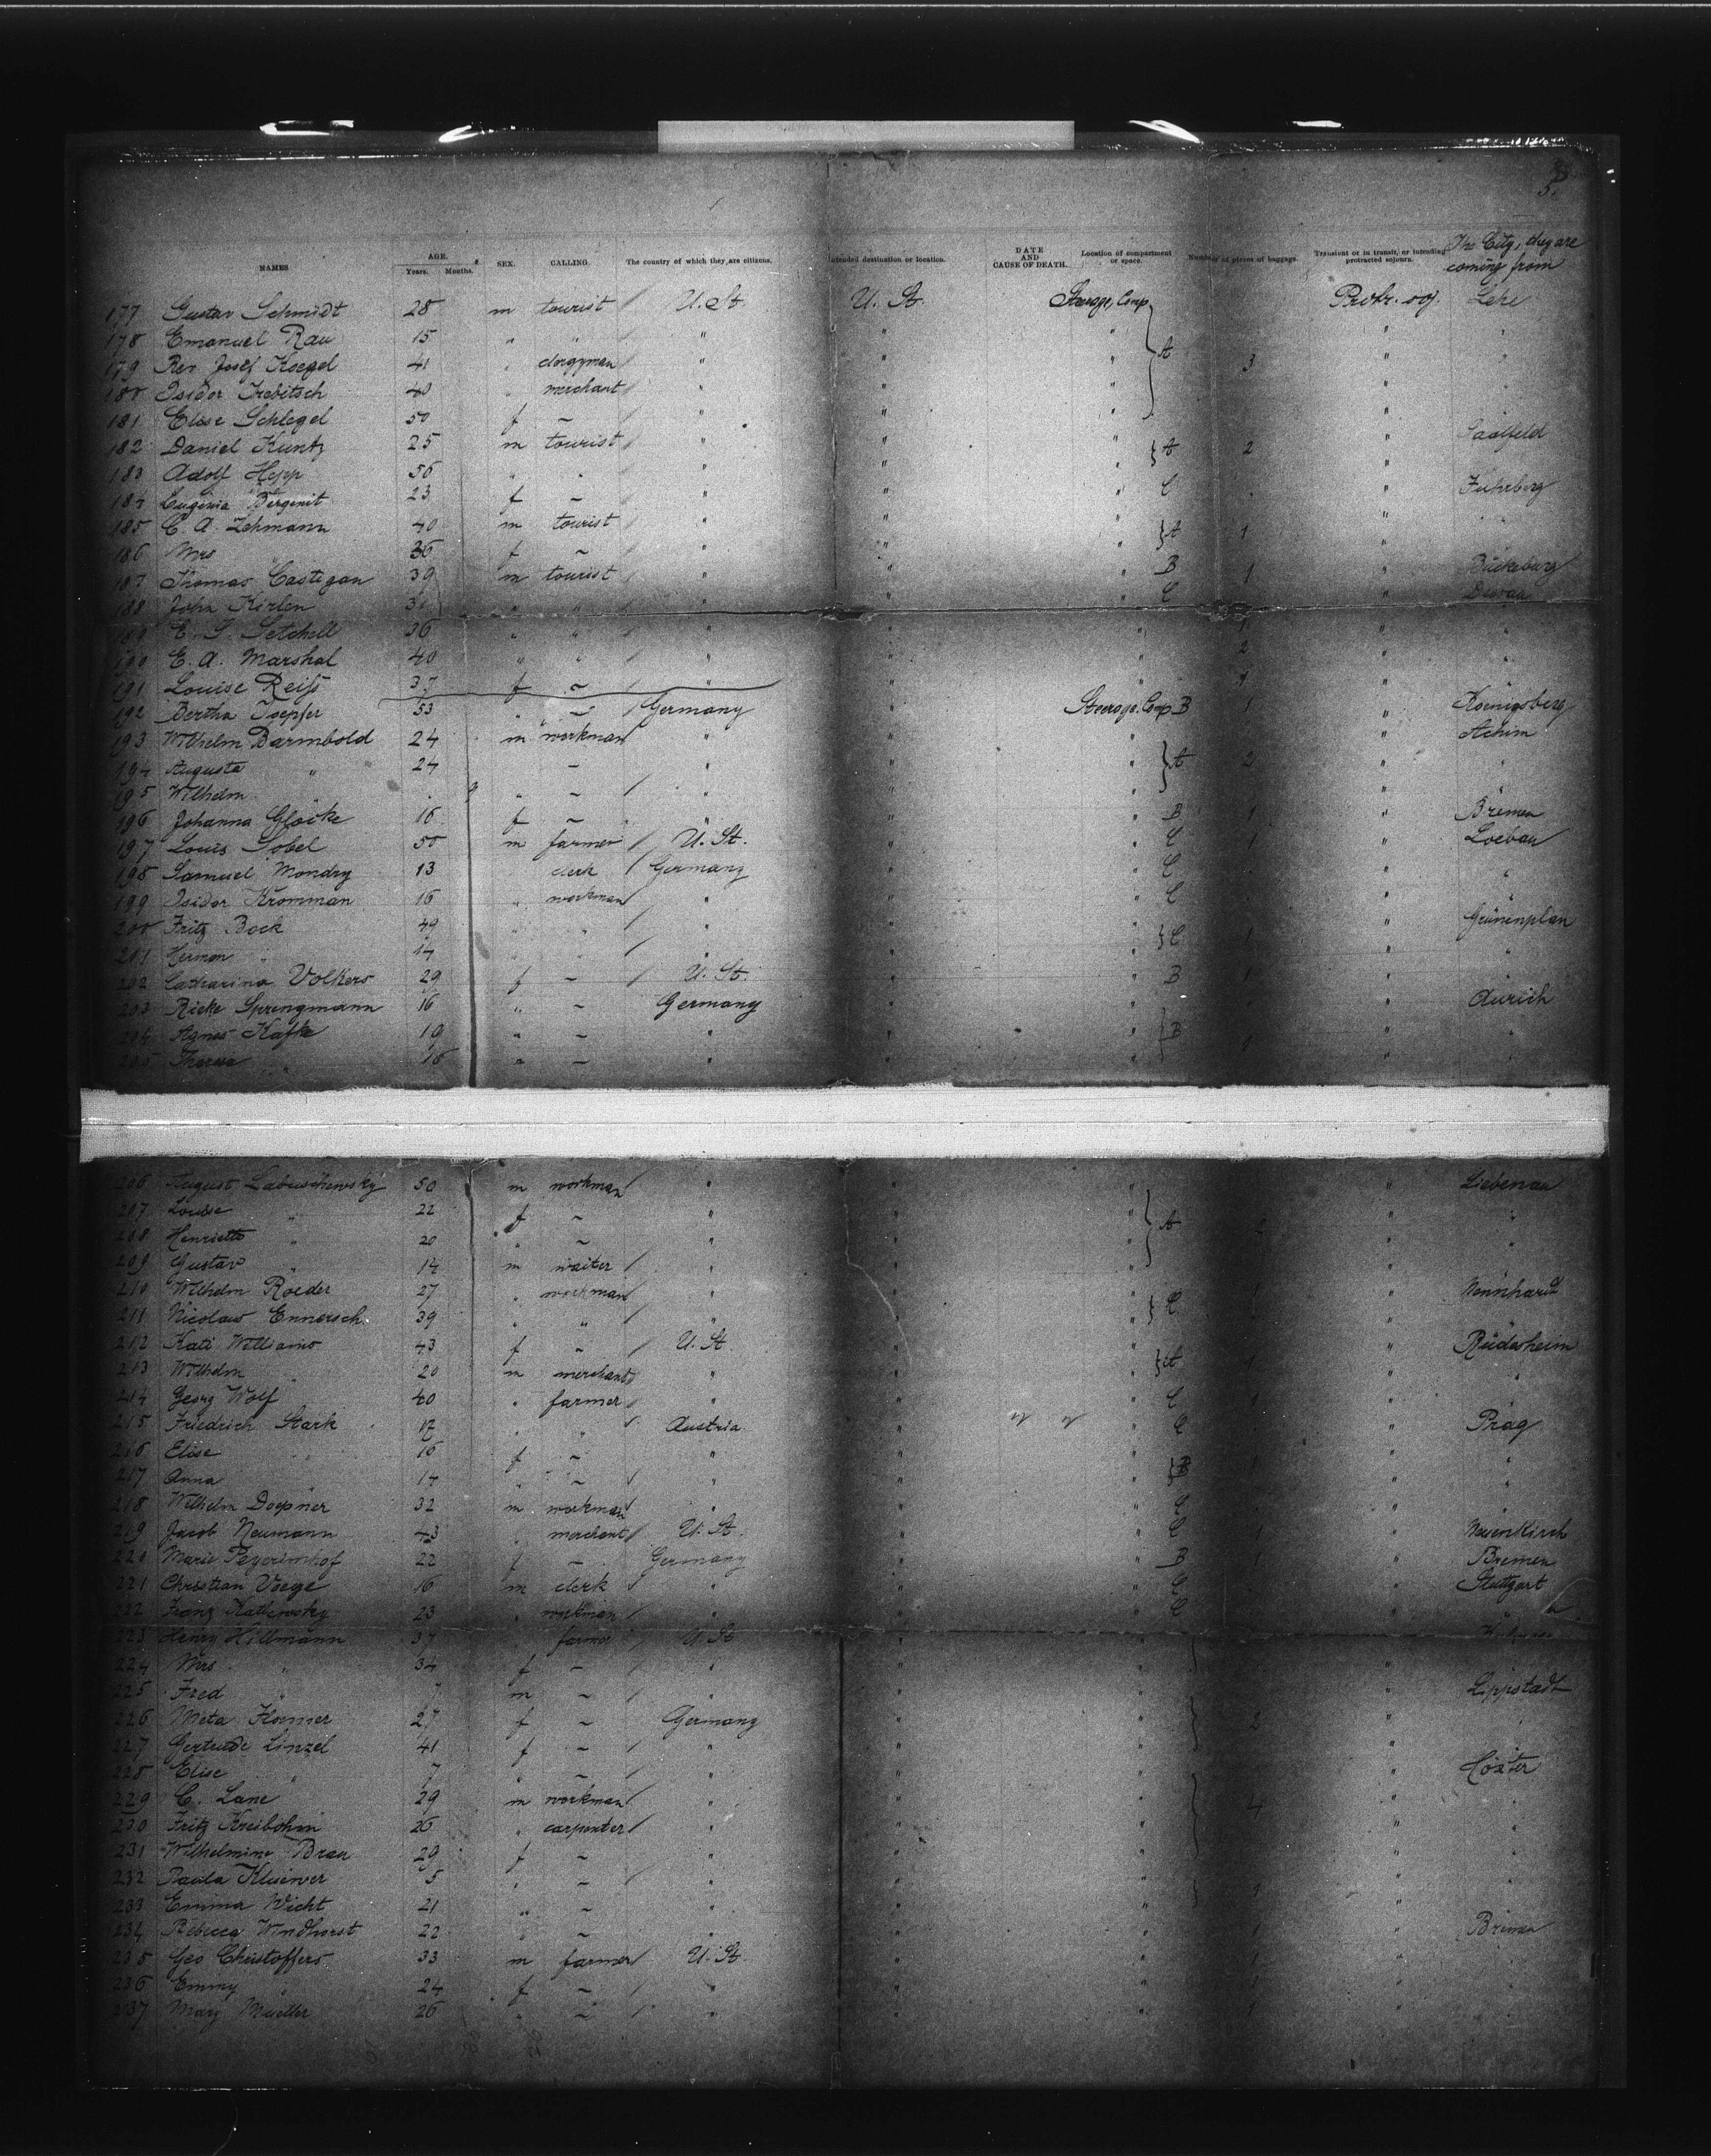 5.
NAMES AGE. Years. Months. SEX. CALLING. The country of which they are citizens. Intended destination or location. DATE AND CAUSE OF DEATH. Location of compartment or space. Number of pieces of baggage. Transient or in transit, or intending protracted sojourn. The City, they are coming from
177 Gustav Schmidt 28 m tourist / U. St. U. St. Steerage, Comp Protr. soj. Lehe
178 Emanuel Rau 15 " " / " " " " "
179 Rev. Josef Koegel 41 " clergyman / " " " A 3 " "
180 Isidor Trebitsch 40 " merchant / " " " " "
181 Elise Schlegel 50 f — / " " " " "
182 Daniel Kuntz 25 m tourist / " " " A 2 " Saalfeld
183 Adolf Hepp 56 " " / " " " "
184 Eugenia 23 f — / " " " C " Fuhrberg
185 C. A. Lehmann 40 m tourist / " " " A 1 " "
186 Mrs " 36 f — / " " " "
187 Thomas Castigan 39 m tourist / " " " B 1 " Bückeburg
188 John Kirlen " " / " " " C "
189 E. G. Setchell 36 " " / " " " 1 " "
190 E. A. Marshal 40 " " / " " " 2 " "
191 Louise Reiß 37 f — / " " " 1 "
192 Bertha Toepfer 53 " — / Germany " Steerage. Comp B 1 " Koenigsberg
193 Wilhelm Barmbold 24 m workman / " " " " Achim
194 Auguste " 24 — " " " A 2 " "
195 Wilhelm " 9 " — / " " " " "
196 Johanna Glocke 16 f — " " " B 1 " Bremen
197 Louis Sobel 50 m farmer / U. St. " " C 1 " Loebau
198 Samuel Mondry 13 " clerk / Germany " " C " "
199 Isidor Kromman 16 " workman / " " " C " "
200 Fritz Bock 49 " " / " " " C 1 " Grünenplan
201 Herman " 14 " " / " " " " "
202 Catharina Volkers 29 f — / U. St. " " B 1 " "
203 Rieke Sprengmann 16 " — Germany " " " Aurich
204 Agnes Kafke 19 " — " " " B " "
205 Therese " 16 " — " " " 1 " "
206 August Labuschewsky 50 m workman / " " " " Liebenau
207 Louise " 22 f — " " " A " "
208 Henriette " 20 " — " " " " "
209 Gustav " 14 m waiter / " " " " "
210 Wilhelm Roeder 27 " workman / " " " C 1 "
211 Nicolaus Ennersch 39 " " / " " " "
212 Kati Williams 43 f — / U. St. " " A 1 " Rüdesheim
213 Wilhelm " 20 m merchant / " " " " "
214 Georg Wolf 40 " farmer / " " " C 1 "
215 Friedrich Stark " " / Austria " " C " Prag
216 Elise " 16 f — " " " B 1 " "
217 Anna " 14 " — / " " " " "
218 Wilhelm Doepner 32 m workman / " " " C " "
219 Jacob Neumann 43 " merchant / U. St. " " C " Neuenkirch
220 Marie Peyerimhof 22 f — Germany " " B 1 " Bremen
221 Christian Voege 16 m clerk / " " " C " Stuttgart
222 Franz 23 " workman / " " " C "
223 Henry Hillmann 37 " farmer U. St " " "
224 Mrs " 34 f — / " " " "
225 Fred " 7 m — / " " " " Lippstadt
226 Meta 27 f — Germany " " 2 " "
227 Gertrude Linzel 41 f — / " " " "
228 Elise " 7 " — / " " " " Höxter
229 C. Lane 29 m workman / " " " 4 " "
230 Fritz Kreibohm 26 " carpenter / " " " " "
231 Wilhelmine Brau 29 f — " " " " "
232 Paula 5 " — / " " " "
233 Emma Wicht 21 " — " " " 1 "
234 Rebecca Windhorst 22 " — " " " 1 " Bremen
235 Geo Christoffers 33 m farmer / U. St. " " 1 " "
236 Emmy " 24 f — / " " " 1 " "
237 Mary Mueller 26 " — / " " " 1 " "